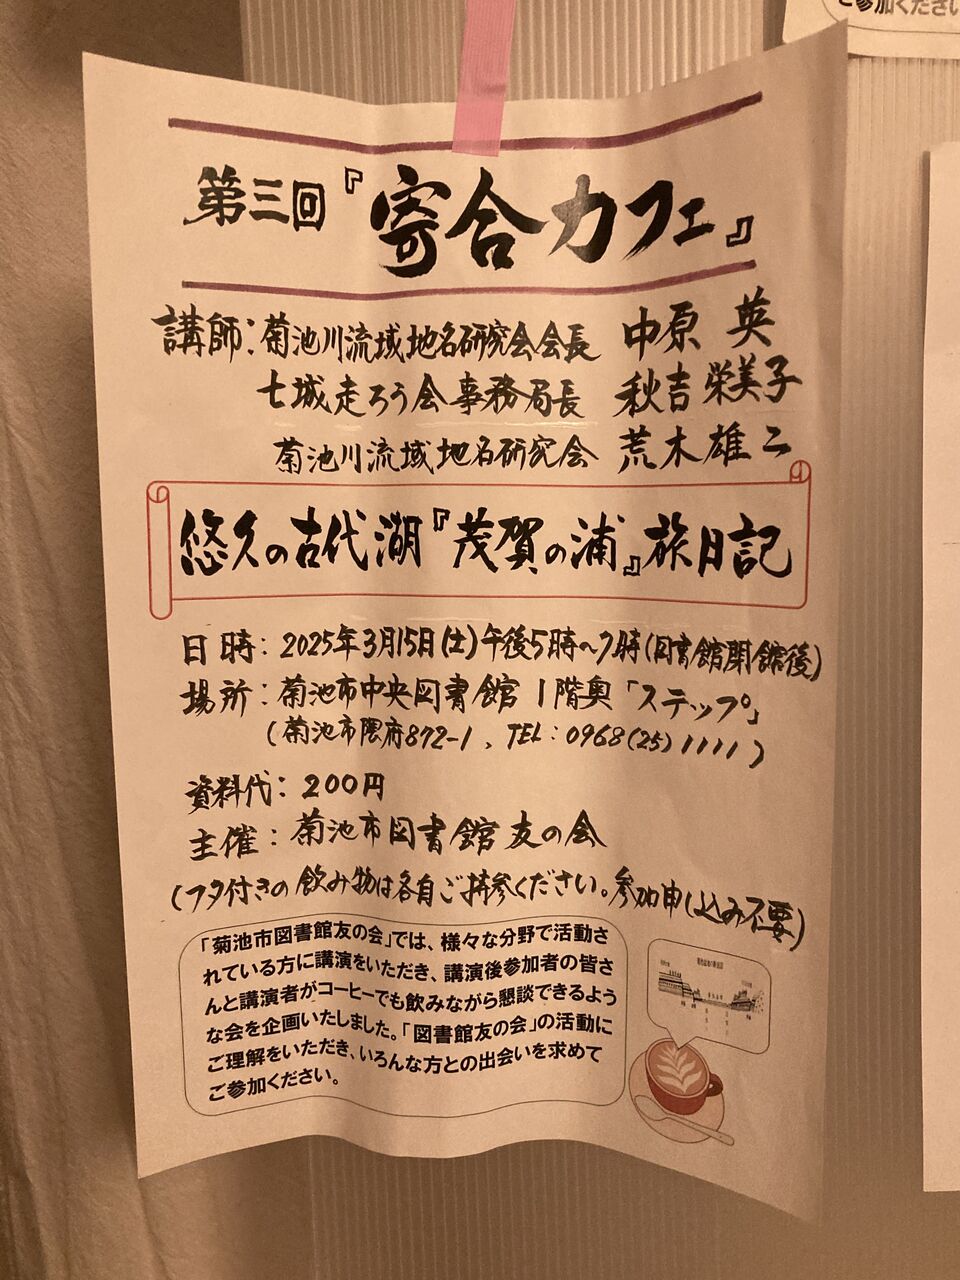 ご参加ください
第三回『寄合カフェ』
講師:菊池川流域地名研究会会長 中原 英
七城走ろう会事務局長 秋吉栄美子
菊池川流域地名研究会 荒木雄二
悠久の古代湖『茂賀の浦』旅日記
日時:2025年3月15日(土)午後5時〜7時(図書館閉館後)
場所:菊池市中央図書館 1階奥「ステップ」
(菊池市隈府872-1、TEL:0968(25)1111)
資料代:200円
主催:菊池市図書館友の会
(フタ付きの飲み物は各自ご持参ください。参加申し込み不要)
「菊池市図書館友の会」では、様々な分野で活動さ
れている方に講演をいただき、講演後参加者の皆さ
んと講演者がコーヒーでも飲みながら懇談できるよう
な会を企画いたしました。「図書館友の会」の活動に
ご理解をいただき、いろんな方との出会いを求めて
ご参加ください。